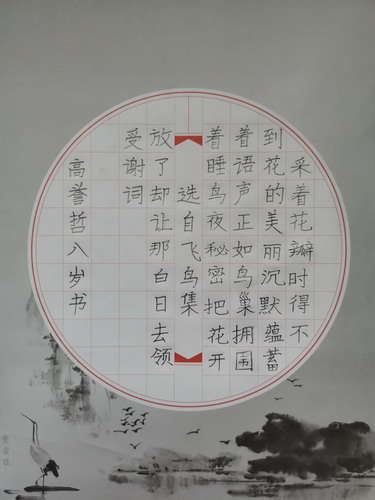 采着花瓣时得不
到花的美丽沉默蕴蓄
着语声正如鸟巢拥围
着睡鸟夜秘密把花开
选自飞鸟集
放了却让那白日去领
受谢词
高誉哲八岁书